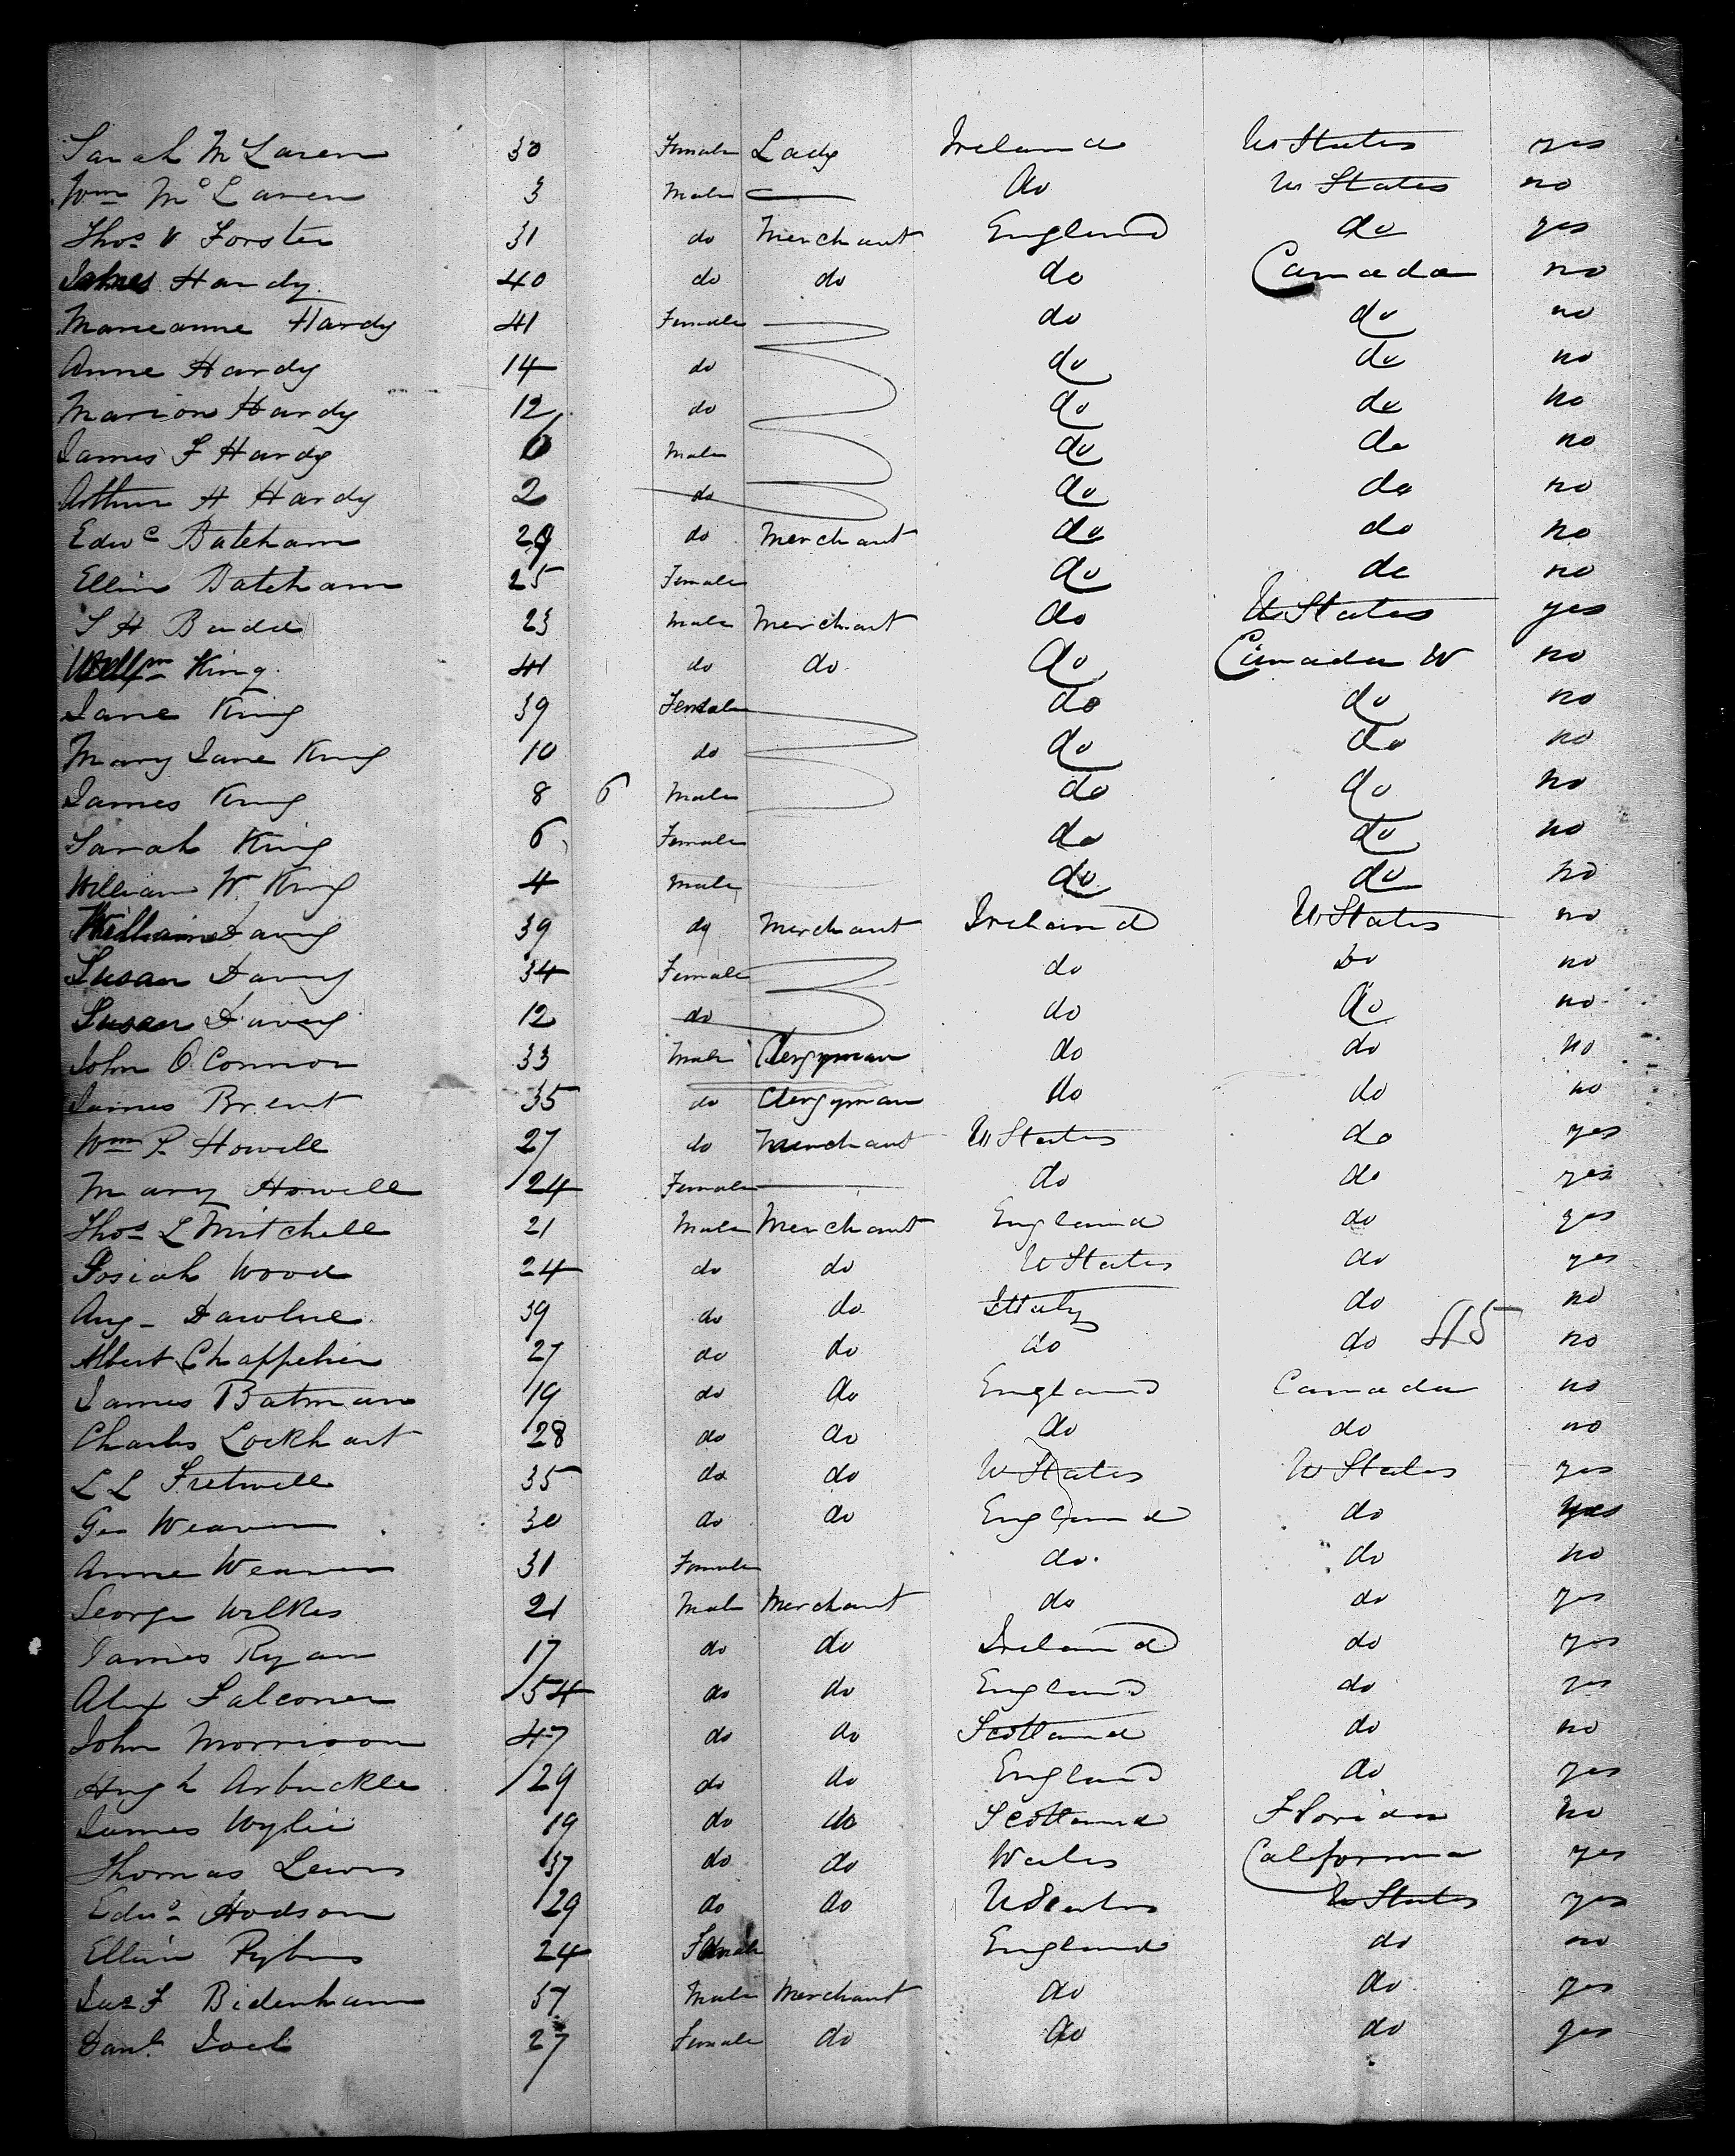 Sarah McLaren 30 Female Lady Ireland U States yes
Wm McLaren 3 Male — do U States no
Thos V Forster 31 do Merchant England do yes
James Hardy 40 do do do Canada no
Marieanne Hardy 41 Female do do no
Anne Hardy 14 do do do no
Marion Hardy 12 do do do no
James F Hardy 6 Male do do no
Arthur H Hardy 2 do do do no
Edwd Bateham 29 do Merchant do do no
Ellin Bateham 25 Female do do no
S H Budd 23 Male Merchant do U States yes
Willm King 41 do do do Canada W no
Jane King 39 Female do do no
Mary Jane King 10 do do do no
James King 8 6 Male do do no
Sarah King 6 Female do do no
William W King 4 Male do do no
William Davey 39 do Merchant Ireland U States no
Susan Davey 34 Female do do no
Susan Davey 12 do do do no
John O Connor 33 Male Clergyman do do no
James Brent 35 do Clergyman do do no
Wm P Howell 27 do Merchant U States do yes
Mary Howell 24 Female — do do yes
Thos L Mitchell 21 Male Merchant England do yes
Josiah Wood 24 do do U States do yes
Aug 39 do do Italy do no
Albert Chappelier 27 do do do do 415 no
James Batman 19 do do England Canada no
Charles Lockhart 28 do do do do no
L L Fretwell 35 do do U States U States yes
Geo Weaver 30 do do England do yes
Anne Weaver 31 Female do do no
George Wilkes 21 Male Merchant do do yes
James Ryan 17 do do Ireland do yes
Alex Falconer 54 do do England do yes
John Morrison 47 do do Scotland do no
Hugh Arbuckle 29 do do England do yes
James Wylie 19 do do Scotland Florida no
Thomas Lewis 37 do do Wales California yes
Edwd Hodson 29 do do U States U States yes
Ellin Pybus 24 Female England do no
Jas F Bidenham 37 Male Merchant do do yes
Danl Joel 27 Female do do do yes